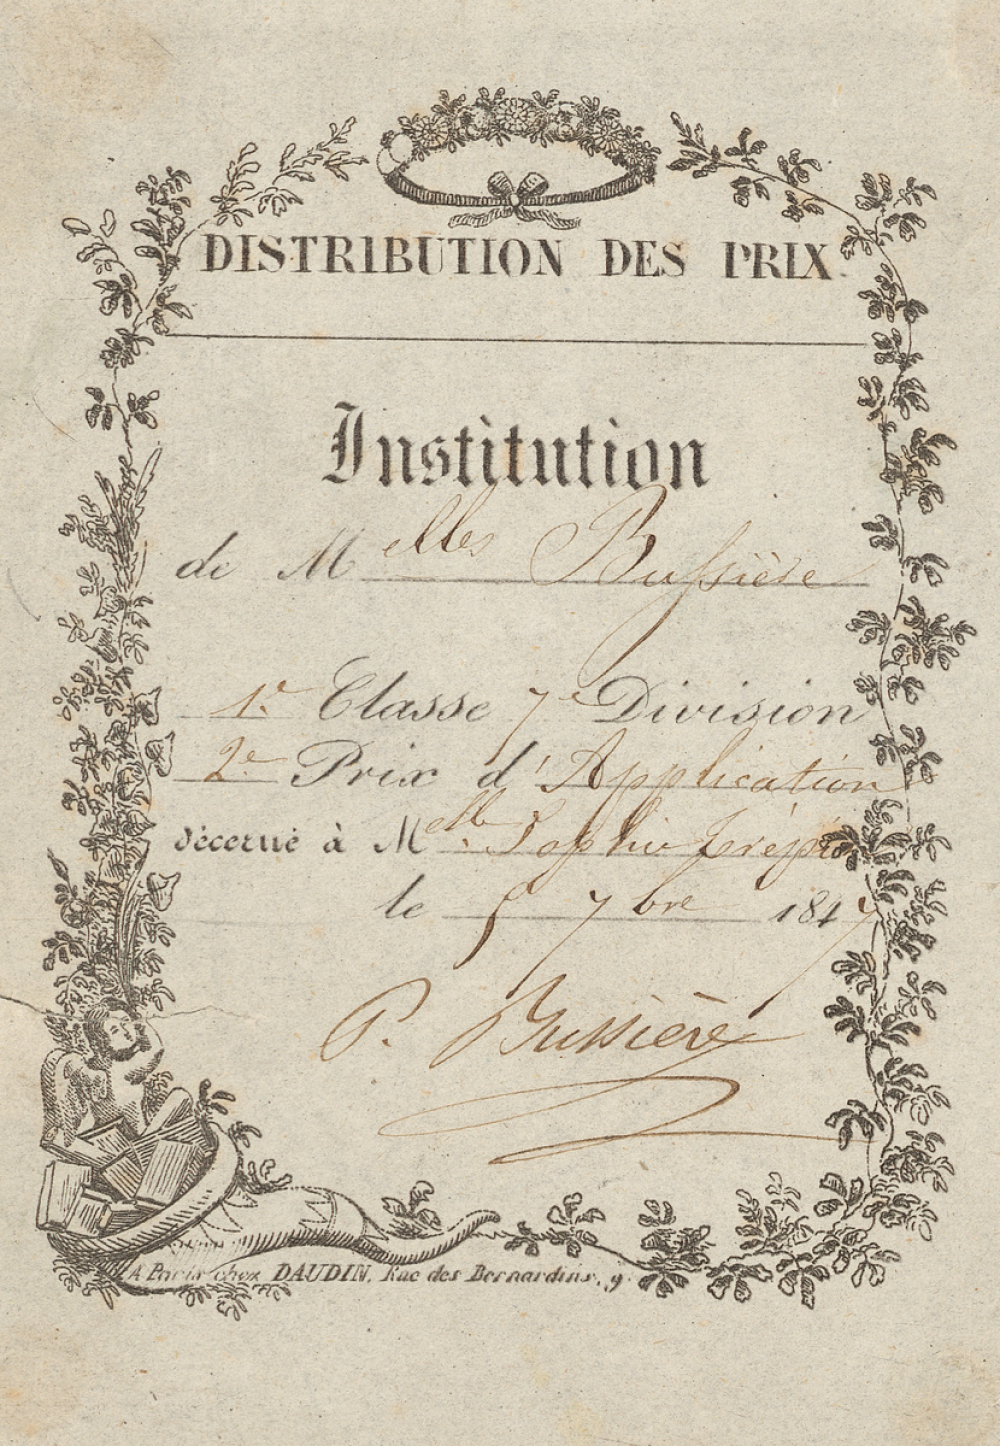 DISTRIBUTION DES PRIX.
Institution
de M elles Bussière
1.e Classe 7e Division
2e Prix d'Application
décerné à M elle Sophie
le 5 7bre 1847
P. Bussière
A Paris chez DAUDIN, Rue des Bernardins, 9.